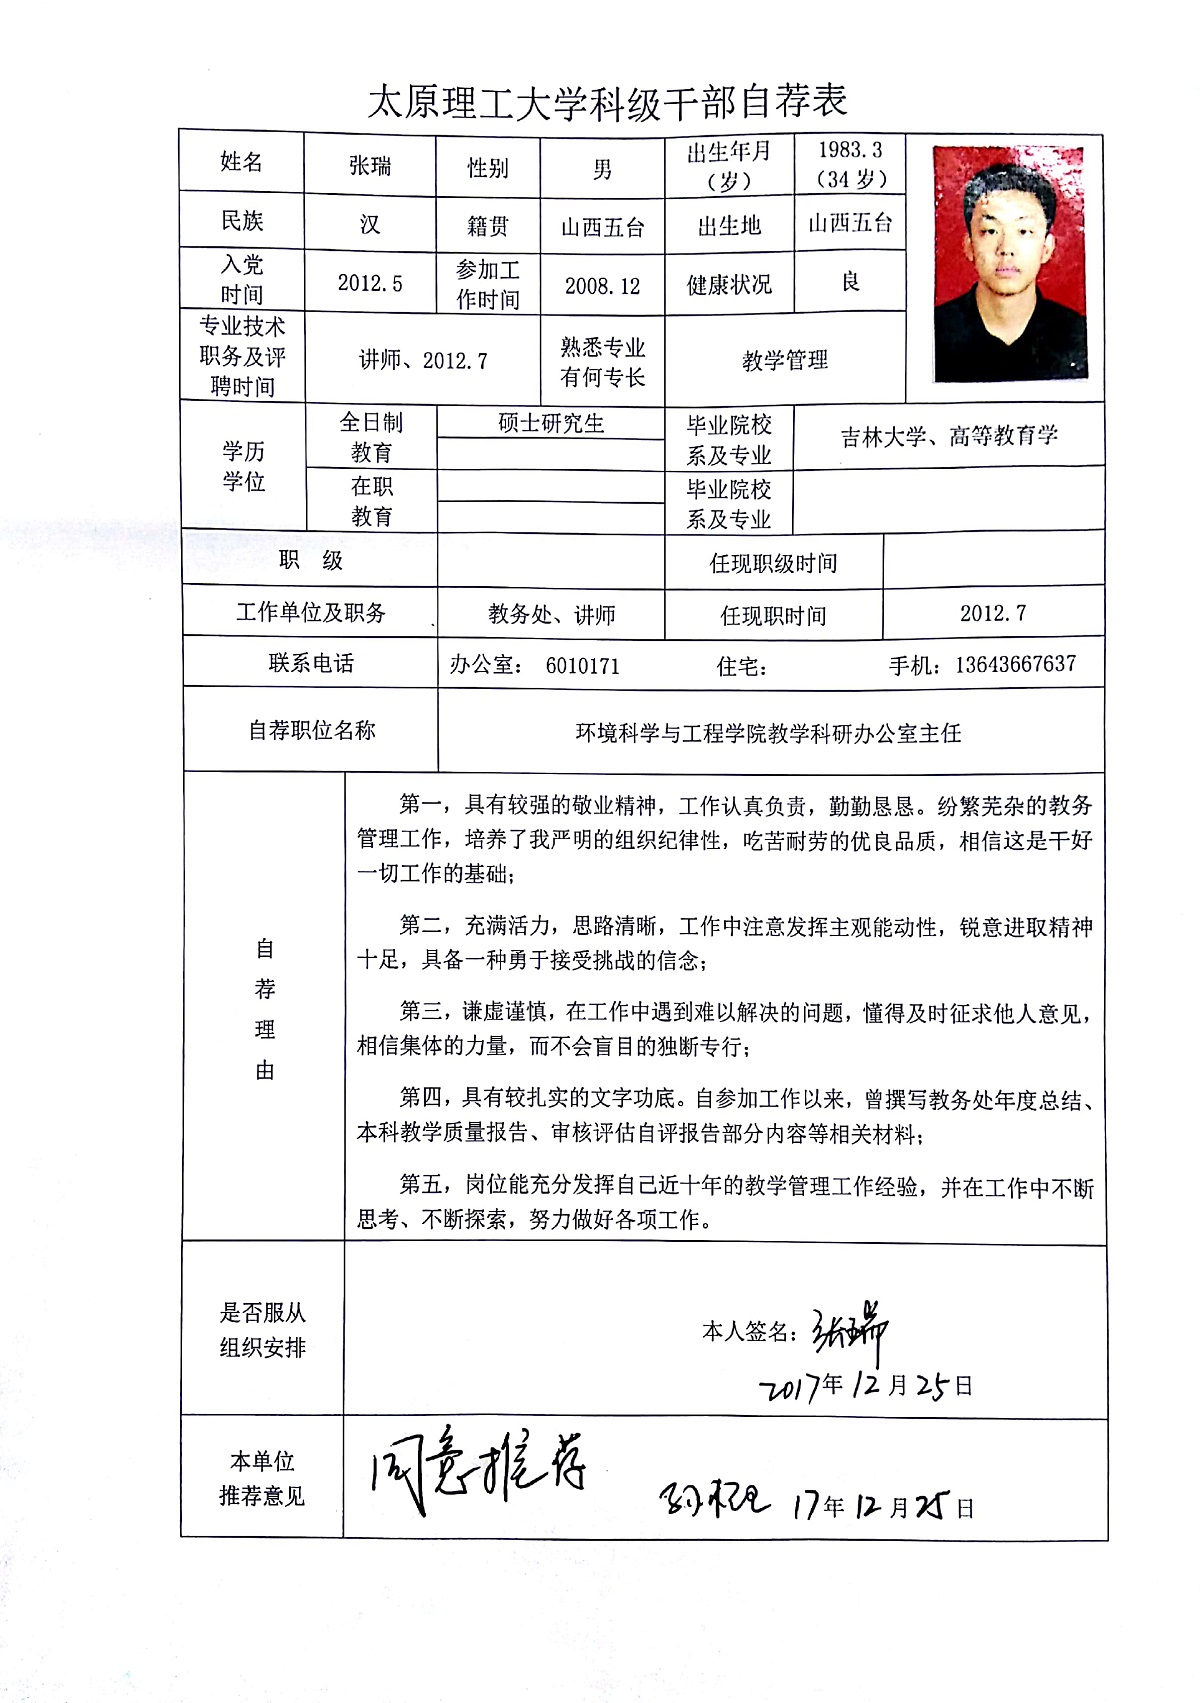 太原理工大学科级干部自荐表
姓名 张瑞 性别 男 出生年月（岁） 1983.3（34岁）
民族 汉 籍贯 山西五台 出生地 山西五台
入党时间 2012.5 参加工作时间 2008.12 健康状况 良
专业技术职务及评聘时间 讲师、2012.7 熟悉专业有何专长 教学管理
学历学位 全日制教育 硕士研究生 毕业院校系及专业 吉林大学、高等教育学
在职教育 毕业院校系及专业
职 级 任现职级时间
工作单位及职务 教务处、讲师 任现职时间 2012.7
联系电话 办公室： 6010171 住宅： 手机：13643667637
自荐职位名称 环境科学与工程学院教学科研办公室主任
自荐理由
第一，具有较强的敬业精神，工作认真负责，勤勤恳恳。纷繁芜杂的教务
管理工作，培养了我严明的组织纪律性，吃苦耐劳的优良品质，相信这是干好
一切工作的基础；
第二，充满活力，思路清晰，工作中注意发挥主观能动性，锐意进取精神
十足，具备一种勇于接受挑战的信念；
第三，谦虚谨慎，在工作中遇到难以解决的问题，懂得及时征求他人意见，
相信集体的力量，而不会盲目的独断专行；
第四，具有较扎实的文字功底。自参加工作以来，曾撰写教务处年度总结、
本科教学质量报告、审核评估自评报告部分内容等相关材料；
第五，岗位能充分发挥自己近十年的教学管理工作经验，并在工作中不断
思考、不断探索，努力做好各项工作。
是否服从组织安排
本人签名：张瑞
2017年12月25日
本单位推荐意见
同意推荐
17年12月25日